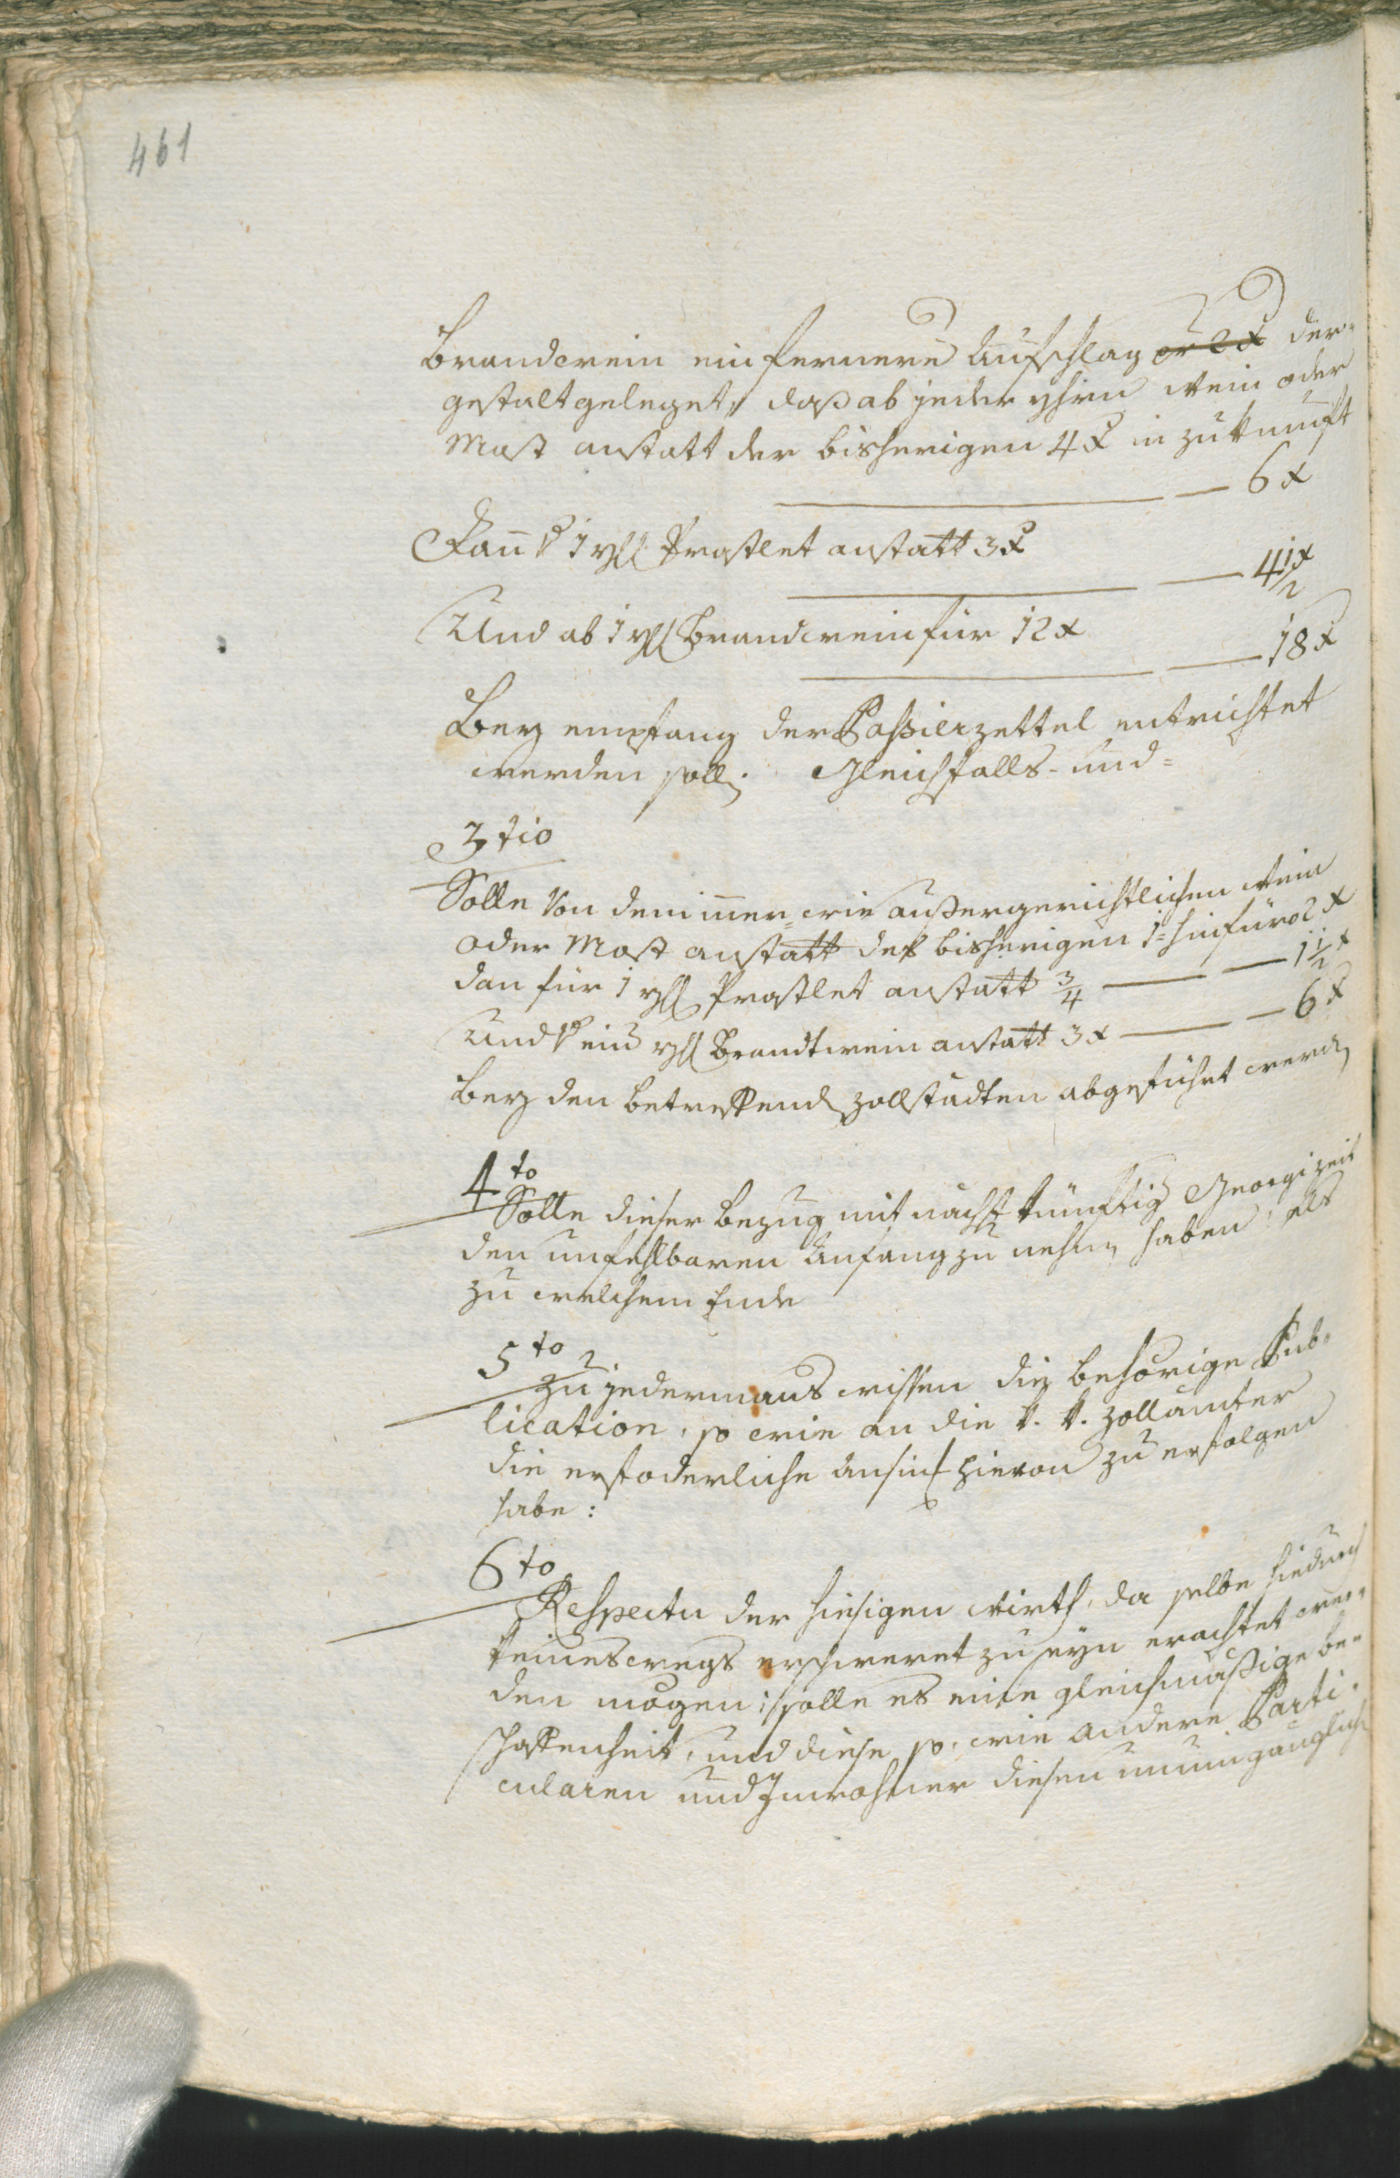 461
Brandwein ein fernere Aufschlag der-
gestalt geleget, daß ab jeder yhrn wein oder
Most anstatt der bisherigen 4 x in zukunfft
6 x
Dan 1 yhl Prastlet anstatt 3 x
4 1/2 x
Und ab 1 yhl Brandwein für 12 x
18 x
Bey empfang der Passierzettel entrichtet
werden soll; gleichfalls- und=
3tio
Solle von dem inner= wie außergerichtlichen wein
oder Most anstatt des bisherigen 1= hinfüro 2 x
dan für 1 yhl Prastlet anstatt 3/4 — 1 1/2 x
und ein yhl Brandtwein anstatt 3 x — 6 x
Bey den betreffend zollstädten abgeführt werdn
4to
Solle dieser bezug mit nächst künftig Georgi zeit
den unfehlbaren Anfang zu nehmn haben: als
zu welchem Ende
5to
zu jedermans wissen die behörige Pub-
lication, so wie an die k. k. zollämter
die erfoderliche hievon zu erfolgen
habe:
6to
Respectu der hiesigen wirth, da selbe hiedurch
keineswegs erschweret zu seyn erachtet wer-
den mögen: solle es eine gleichmäßige be-
schaffenheit, und diese so, wie andere Parti-
cularen und Inwohner diesen unumgänglich